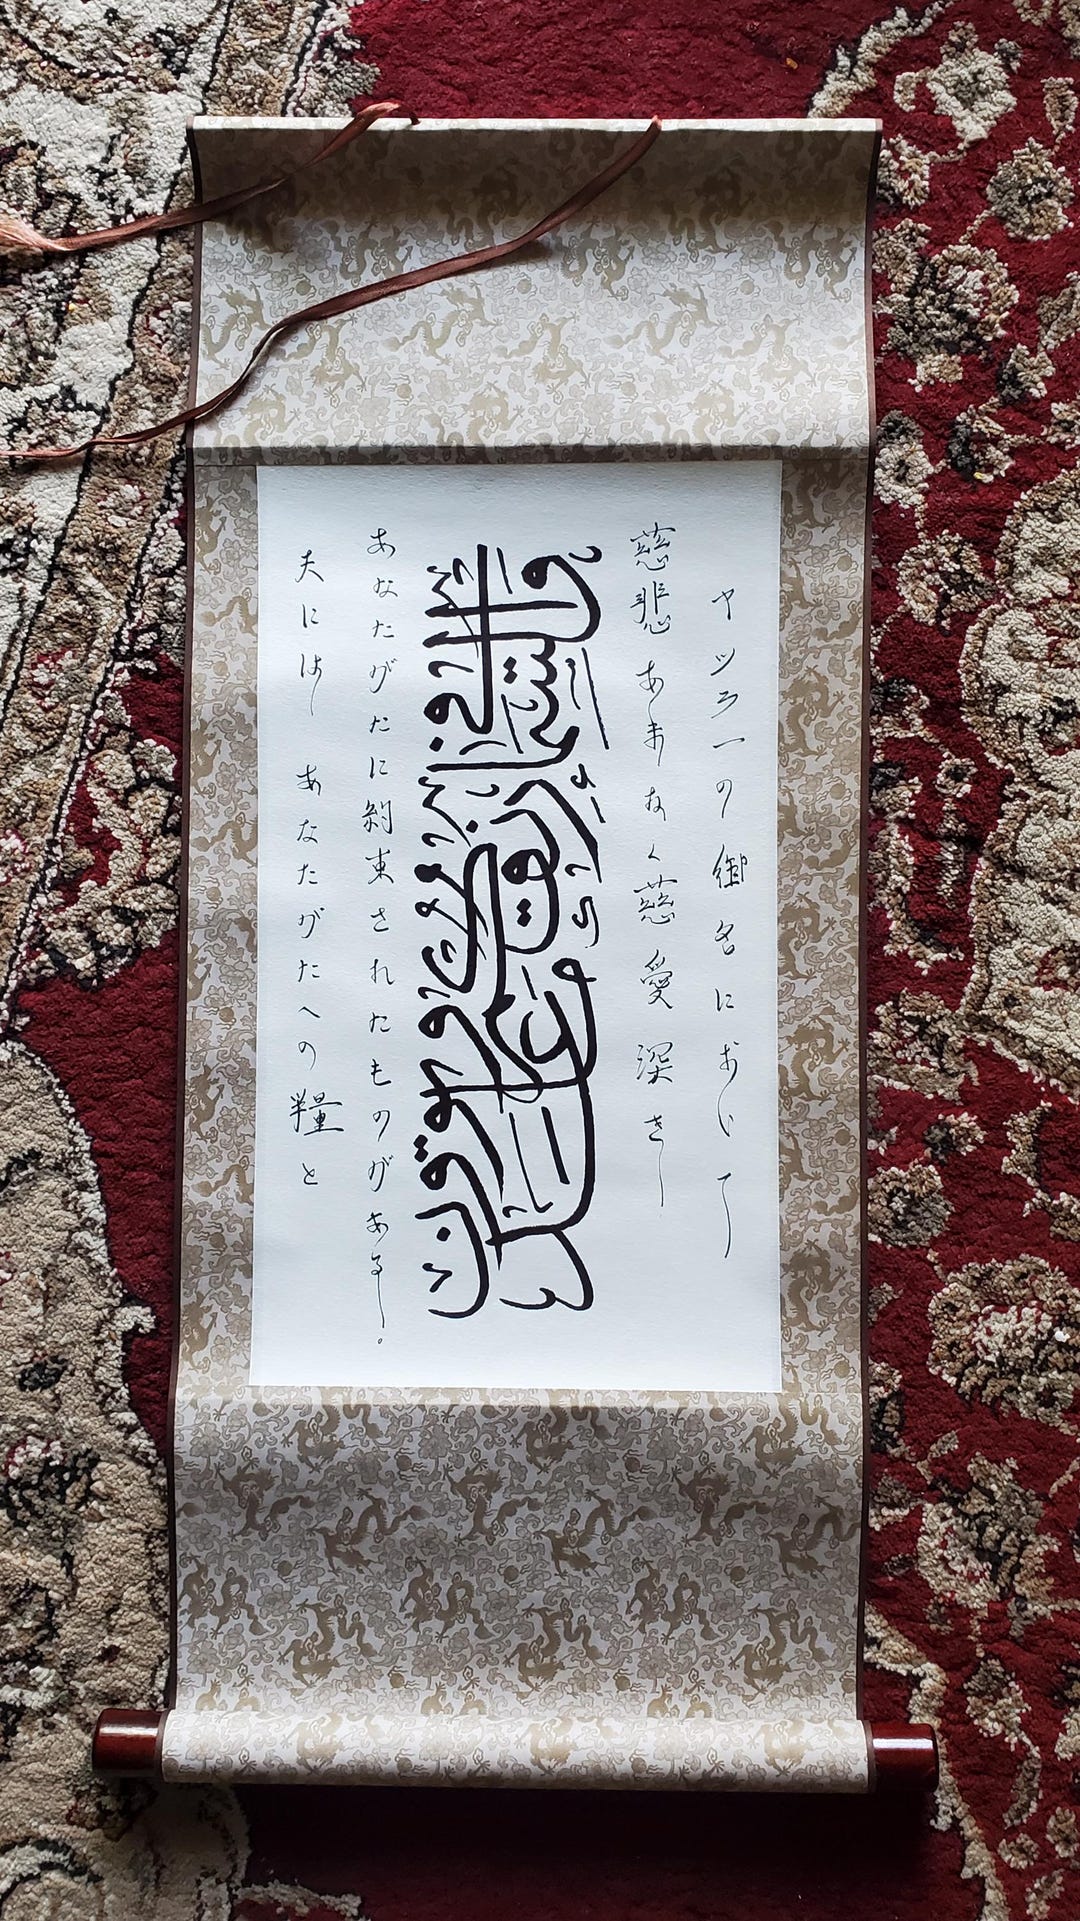 アッラーの御名において
慈悲あまねく慈愛深き
وفي السماء رزقكم وما توعدون
天には あなたがたへの糧と
あなたがたに約束されたものがある。